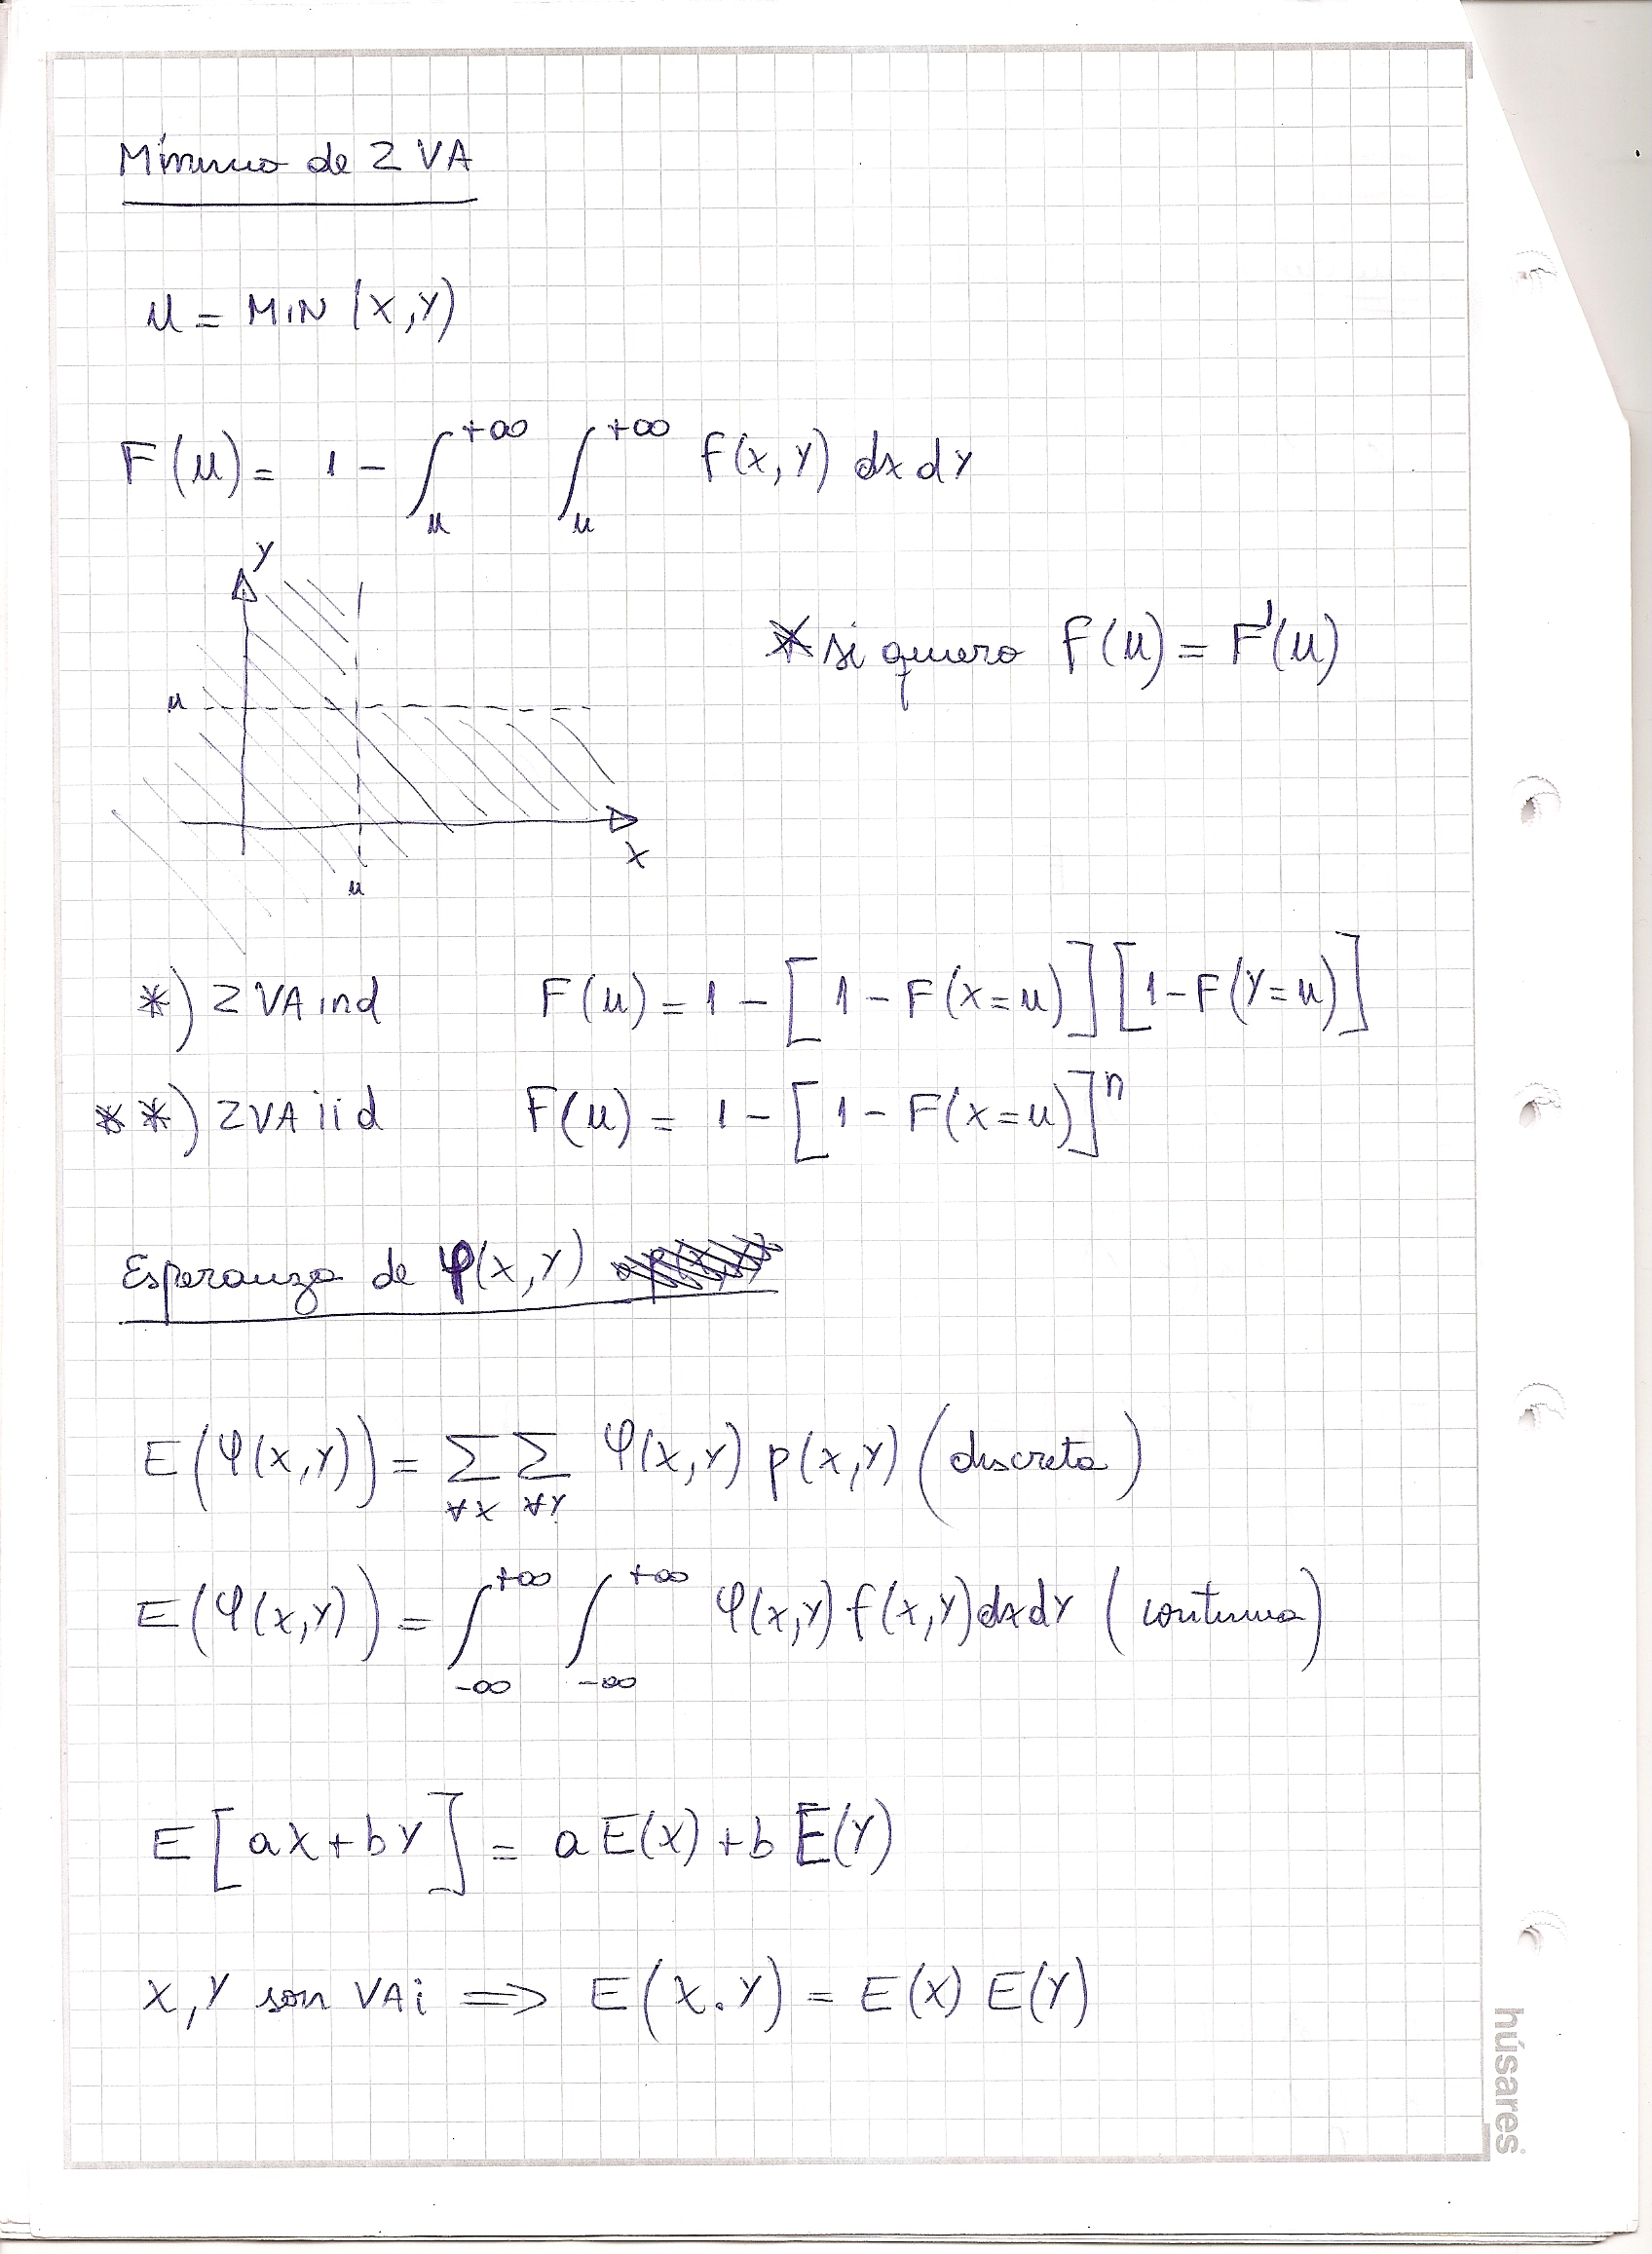 Mínimo de 2 VA
u = MIN (X,Y)
F(u) = 1 - ∫_u^{+∞} ∫_u^{+∞} f(x,y) dx dy
Y
* si quiero f(u) = F'(u)
u
X
u
*) 2 VA ind F(u) = 1 - [1 - F(x=u)] [1 - F(y=u)]
**) 2 VA iid F(u) = 1 - [1 - F(x=u)]^n
Esperanza de φ(x,y)
E(φ(x,y)) = Σ_{∀x} Σ_{∀y} φ(x,y) p(x,y) (discreta)
E(φ(x,y)) = ∫_{-∞}^{+∞} ∫_{-∞}^{+∞} φ(x,y) f(x,y) dx dy (continua)
E[ax + by] = a E(x) + b E(y)
X,Y son VAi ⟹ E(X.Y) = E(X) E(Y)
húsares